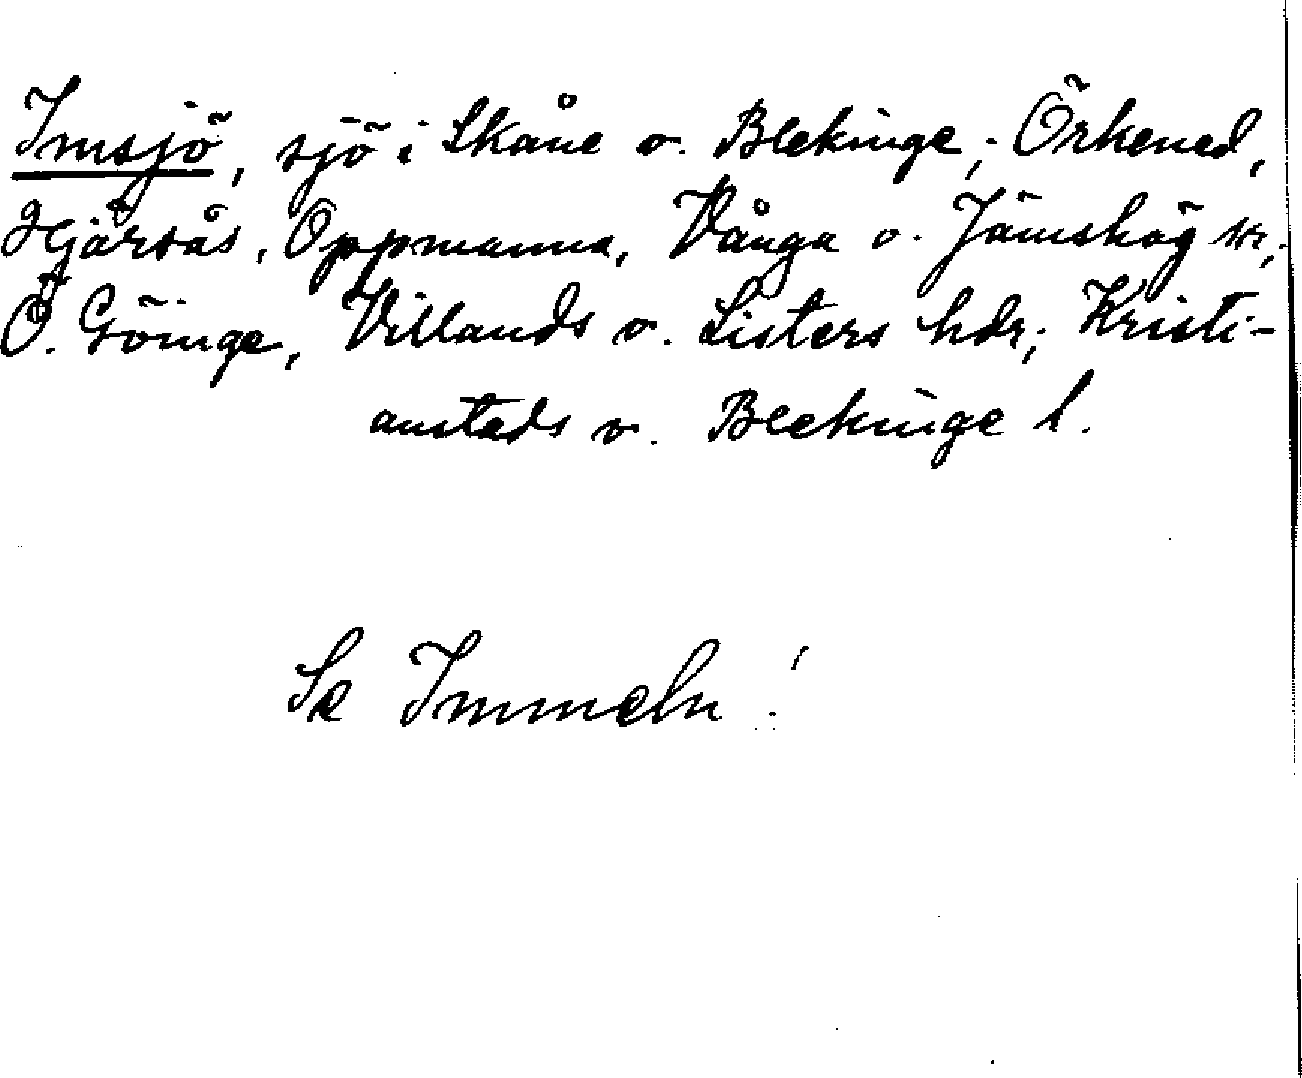 Imsjö, sjö i Skåne o. Blekinge; Örkened,
Hjärsås, Oppmanna, Vånga o. Jämshög sn,
Ö. Göinge, Villands o. Listers hdr; Kristi-
anstads o. Blekinge l.
Se Immeln!